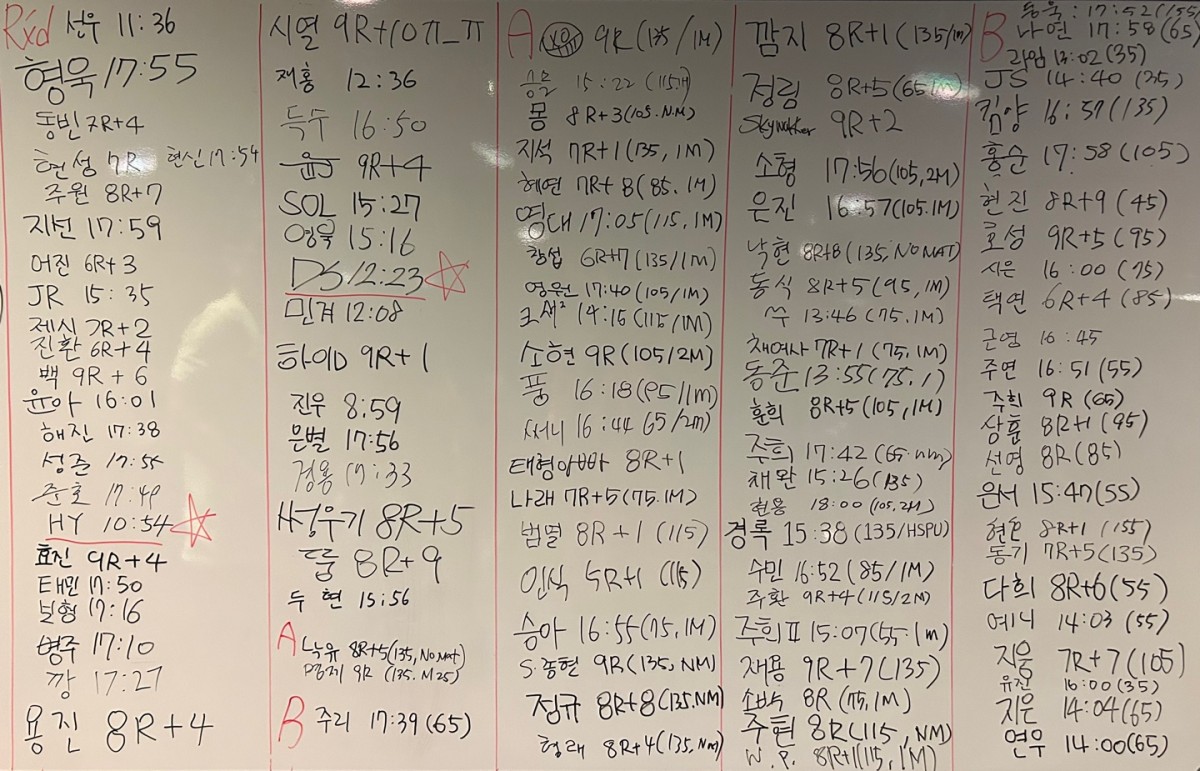 Rxd 선우 11:36
형욱 17:55
동빈 7R+4
현성 7R 현신 17:54
주원 8R+7
지선 17:59
어진 6R+3
JR 15:35
제식 7R+2
진환 6R+4
백 9R+6
윤아 16:01
해진 17:38
성준 17:55
준호 17:49
HY 10:54
효진 9R+4
태민 17:50
보형 17:16
병주 17:10
깡 17:27
용진 8R+4
시열 9R+10 ㅠ_ㅠ
재홍 12:36
득수 16:50
9R+4
SOL 15:27
영욱 15:16
DS 12:23
민겨 12:08
하이D 9R+1
진우 8:59
은별 17:56
정용 17:33
8R+5
룹 8R+9
두현 15:56
A 녹유 8R+5(135, No MAT)
9R (135. M25)
B 주리 17:39 (65)
A 9R (135/1M)
승무 15:22 (115)
몽 8R+3(105.NM)
지석 7R+1(135, 1M)
혜연 7R+8(85.1M)
영대 17:05(115,1M)
창섭 6R+7(135/1M)
영원 17:40(105/1M)
14:15(115/1M)
소현 9R(105/2M)
풍 16:18(95/1m)
써니 16:44 (65/2m)
태형아빠 8R+1
나래 7R+5(75.1M)
범열 8R+1 (115)
인식 5R+1 (115)
승아 16:55(75,1M)
S.종현 9R(135, NM)
정규 8R+8(135.NM)
형래 8R+4(135,Nm)
깜지 8R+1(135/1m)
정림 8R+5(65 1m)
Skywalker 9R+2
소형 17:56(105,2M)
은진 16:57(105.1M)
낙현 8R+8(135, NO MAT)
동식 8R+5(95,1M)
쑤 13:46 (75.1M)
채여사 7R+1(75,1M)
동준 13:55(75.1)
훈희 8R+5(105,1M)
주희 17:42(65.nm)
채완 15:26(135)
현용 18:00(105,2M)
경록 15:38(135/HSPU)
수민 16:52(85/1M)
주환 9R+4(115/2M)
주희Ⅱ 15:07(55.1m)
재용 9R+7(135)
소박수 8R(75,1M)
주현 8R(115, NM)
W.P. 8R+1(115,1M)
B 동욱: 17:52(155)
나연 17:58(65)
라임 13:02(35)
JS 14:40 (35)
김양 16:57(135)
홍순 17:58(105)
현진 8R+9 (45)
효성 9R+5(95)
시은 16:00 (75)
택연 6R+4 (85)
근영 16:45
주연 16:51 (55)
주희 9R (65)
상훈 8R+1 (95)
선영 8R(85)
은서 15:47(55)
현은 8R+1 (155)
동기 7R+5(135)
다희 8R+6(55)
예니 14:03 (55)
지웅 7R+7(105)
유진 16:00(35)
지은 14:04(65)
연우 14:00(65)